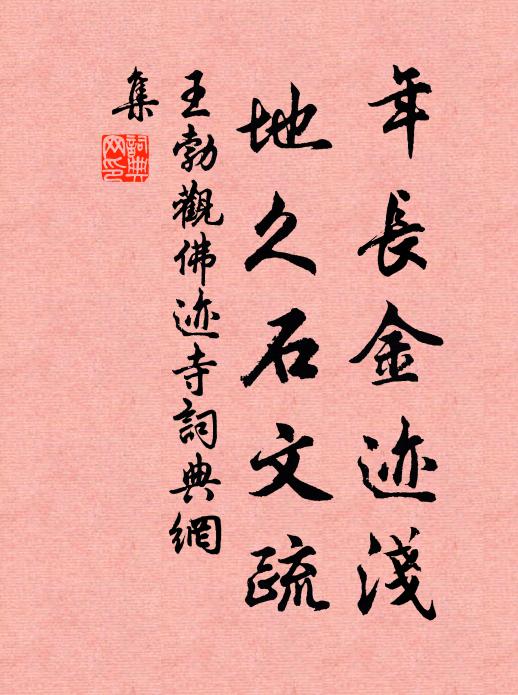 年長金迹淺
地久石文疏
王勃觀佛迹寺詞典網
集
詞典
网印